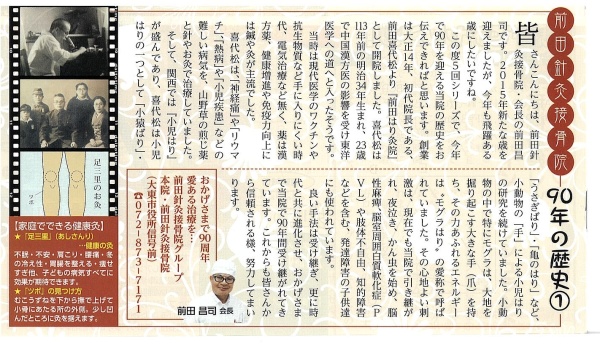 前田針灸接骨院
90年の歴史①
皆さんこんにちは、前田針
灸接骨院・会長の前田昌
司です。2015年新たな歳を
迎えましたが、今年も飛躍ある
歳にしたいですね。
この度5回シリーズで、今年
で90年を迎える当院の歴史をお
伝えできればと思います。創業
は大正14年、初代院長である、
前田喜代松より「前田はり灸院」
として開院しました。喜代松は
113年前の明治34年生まれ、23歳
で中国漢方医の影響を受け東洋
医学への道へと入ったそうです。
当時は現代医学のワクチンや
抗生物質など手に入りにくい時
代、電気治療など無く、薬は漢
方薬、健康増進や免疫力向上に
は鍼や灸が主流でした。
喜代松は、「神経痛」や「リウマ
チ」、「熱病」や「小児疾患」などの
難しい病気を、山野草の煎じ薬
と針やお灸で治療していました。
そして、関西では「小児はり」
が盛んであり、喜代松は小児
はりの一つとして「小猿ばり」・
「うさぎばり」・「亀のはり」など、
小動物の「手」による小児はり
の研究を続けていました。小動
物の中で特にモグラは、大地を
掘り起こす大きな手（爪）を持
ち、その力あふれるエネルギー
は、『モグラはり』の愛称で呼ば
れていました。その心地よい刺
激は、現在でも当院で引き継が
れ、夜泣き、かん虫を始め、脳
性麻痺、脳室周囲白質軟化症（P
VL）や肢体不自由、知的障害
などを含む、発達障害の子供達
にも使われています。
良い手法は受け継ぎ、更に時
代と共に進化させ、おかげさま
で当院で90年間受け継がれてき
ています。これからも皆さんか
ら信頼される様、努力してまい
ります。
おかげさまで90周年
愛ある治療を…
前田針灸接骨院グループ
本院・前田針灸接骨院
（大東市役所信号前）
☎072-873-7171
前田 昌司 会長
足三里のお灸
ツボ
【家庭でできる健康灸】
★「足三里」（あしさんり）
…健康の灸
不眠・不安・肩こり・腰痛・冬
の冷え性・胃腸を整える・痩せ
すぎ他、子どもの病気すべてに
効果が期待できます。
★「ツボ」の見つけ方
むこうずねを下から撫で上げて
小骨にあたる所の外側。少し凹
んだところに灸を据えます。